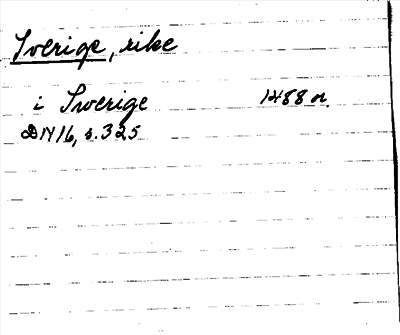 Sverige, rike
i Sverige 1488 or.
DN 16, s. 325